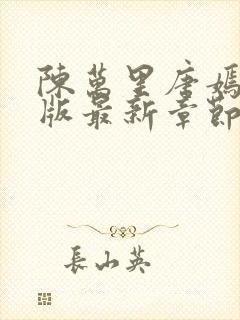 陳萬里唐嫣
版最新章節
長山英